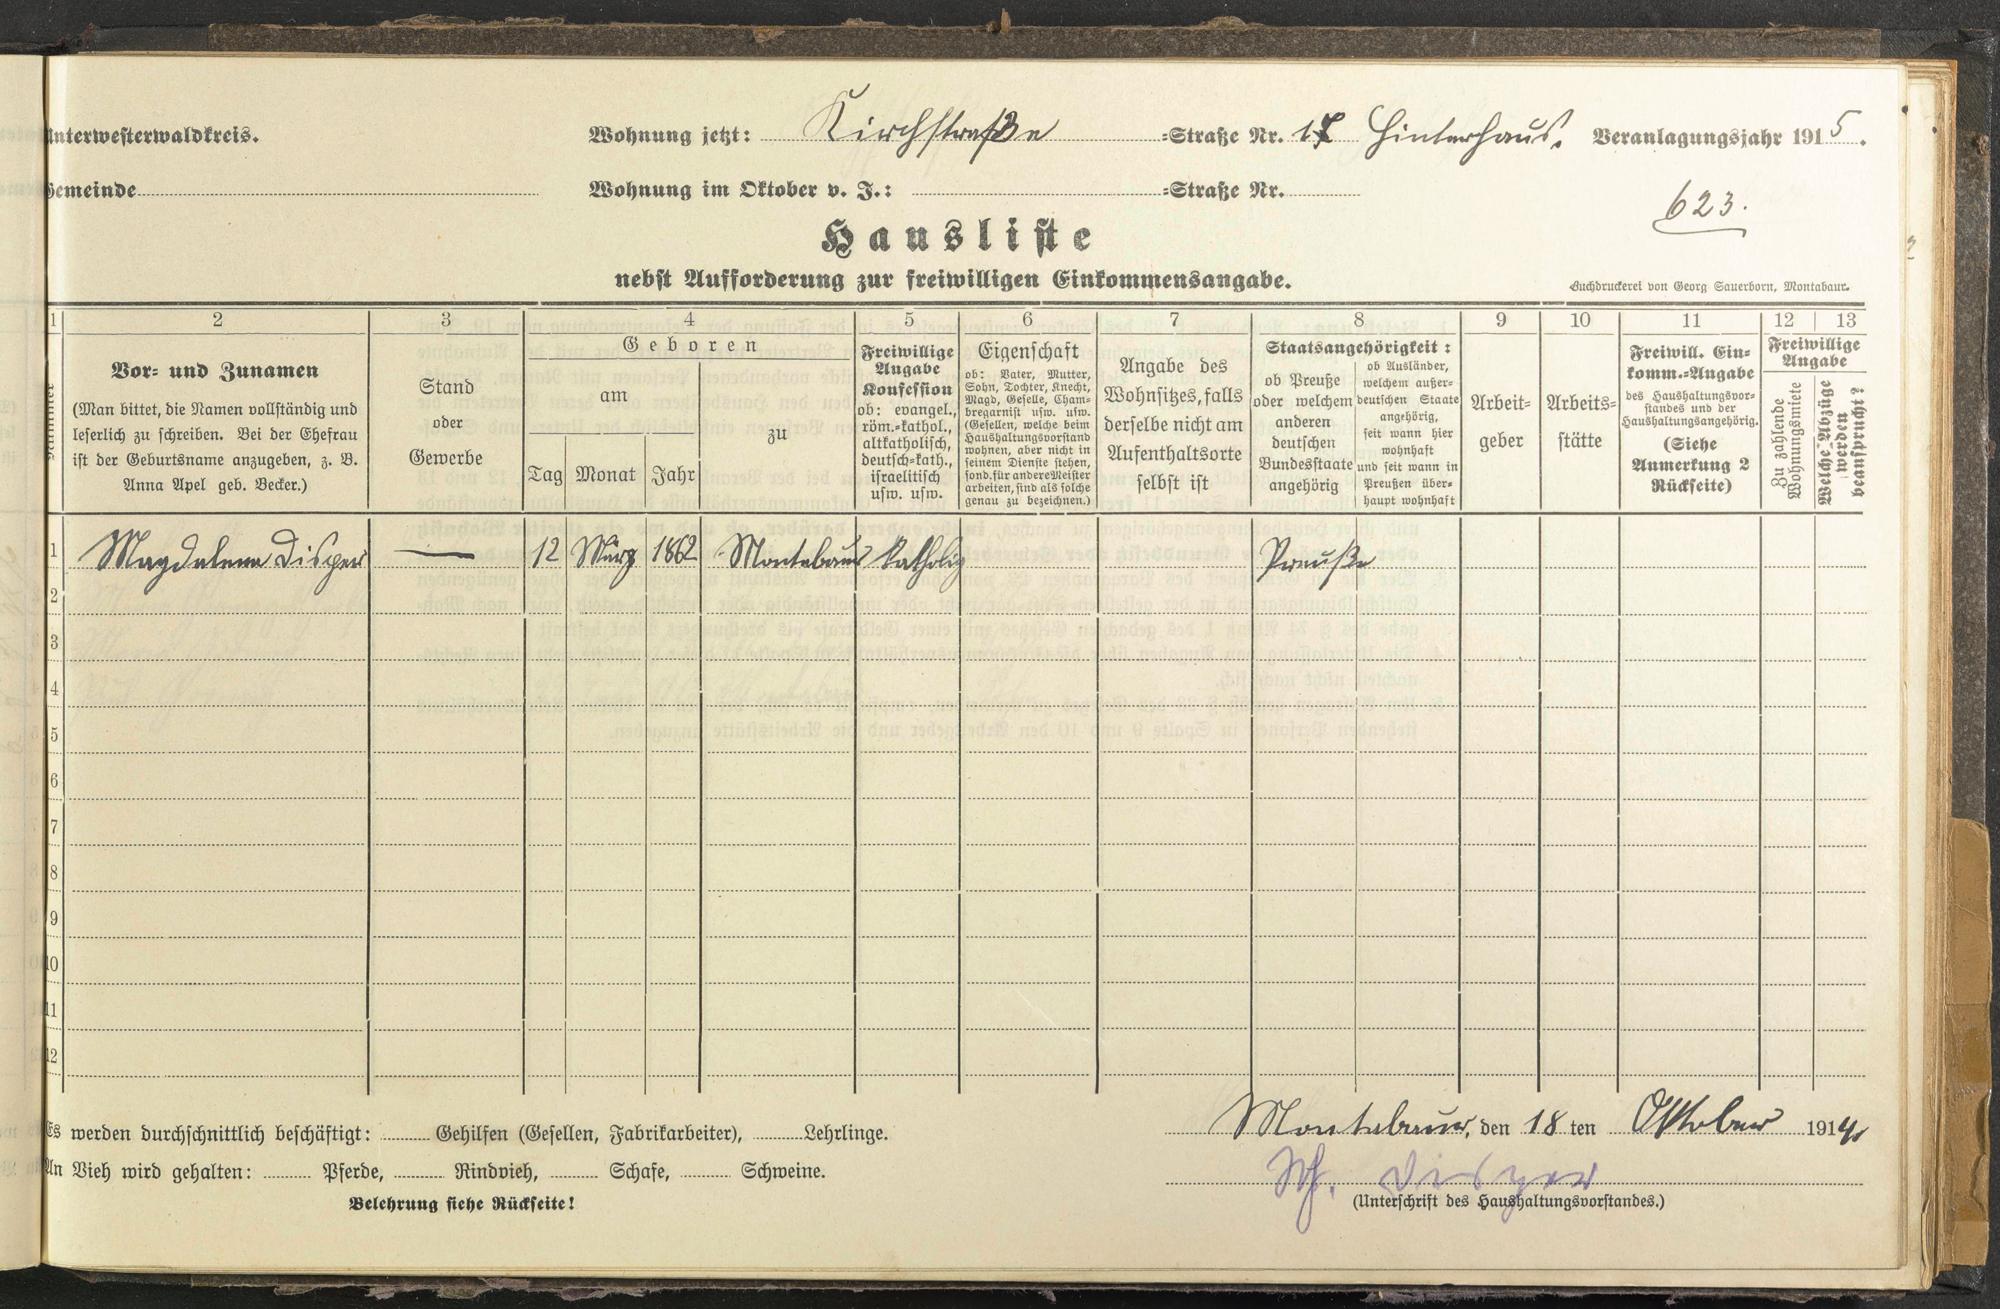 Unterwesterwaldkreis. Wohnung jetzt: Kirchstraße -Straße Nr. 17 Hinterhaus. Veranlagungsjahr 1915.
Gemeinde Wohnung im Oktober v. J.: -Straße Nr.
623.
Hausliste
nebst Aufforderung zur freiwilligen Einkommensangabe.
Buchdruckerei von Georg Sauerborn, Montabaur.
1 2 3 4 5 6 7 8 9 10 11 12 13
Nummer
Vor- und Zunamen
(Man bittet, die Namen vollständig und
leserlich zu schreiben. Bei der Ehefrau
ist der Geburtsname anzugeben, z. B.
Anna Apel geb. Becker.)
Stand
oder
Gewerbe
Geboren
am
Tag Monat Jahr
zu
Freiwillige
Angabe
Konfession
ob: evangel.,
röm.-kathol.,
altkatholisch,
deutsch-kath.,
israelitisch
usw. usw.
Eigenschaft
ob: Vater, Mutter,
Sohn, Tochter, Knecht,
Magd, Geselle, Cham-
bregarnist usw. usw.
(Gesellen, welche beim
Haushaltungsvorstand
wohnen, aber nicht in
seinem Dienste stehen,
sond. für andere Meister
arbeiten, sind als solche
genau zu bezeichnen.)
Angabe des
Wohnsitzes, falls
derselbe nicht am
Aufenthaltsorte
selbst ist
Staatsangehörigkeit:
ob Preuße
oder welchem
anderen
deutschen
Bundesstaate
angehörig
ob Ausländer,
welchem außer-
deutschen Staate
angehörig,
seit wann hier
wohnhaft
und seit wann in
Preußen über-
haupt wohnhaft
Arbeit-
geber
Arbeits-
stätte
Freiwill. Ein-
komm.-Angabe
des Haushaltungsvor-
standes und der
Haushaltungsangehörig.
(Siehe
Anmerkung 2
Rückseite)
Freiwillige
Angabe
Zu zahlende
Wohnungsmiete
Welche Abzüge
werden
beansprucht?
1 Magdalena Disper — 12 März 1862 Montabaur katholig Preuße
2
3
4
5
6
7
8
9
10
11
12
Es werden durchschnittlich beschäftigt: Gehilfen (Gesellen, Fabrikarbeiter), Lehrlinge.
An Vieh wird gehalten: Pferde, Rindvieh, Schafe, Schweine.
Belehrung siehe Rückseite!
Montabaur, den 18 ten Oktober 1914.
M. Disper
(Unterschrift des Haushaltungsvorstandes.)